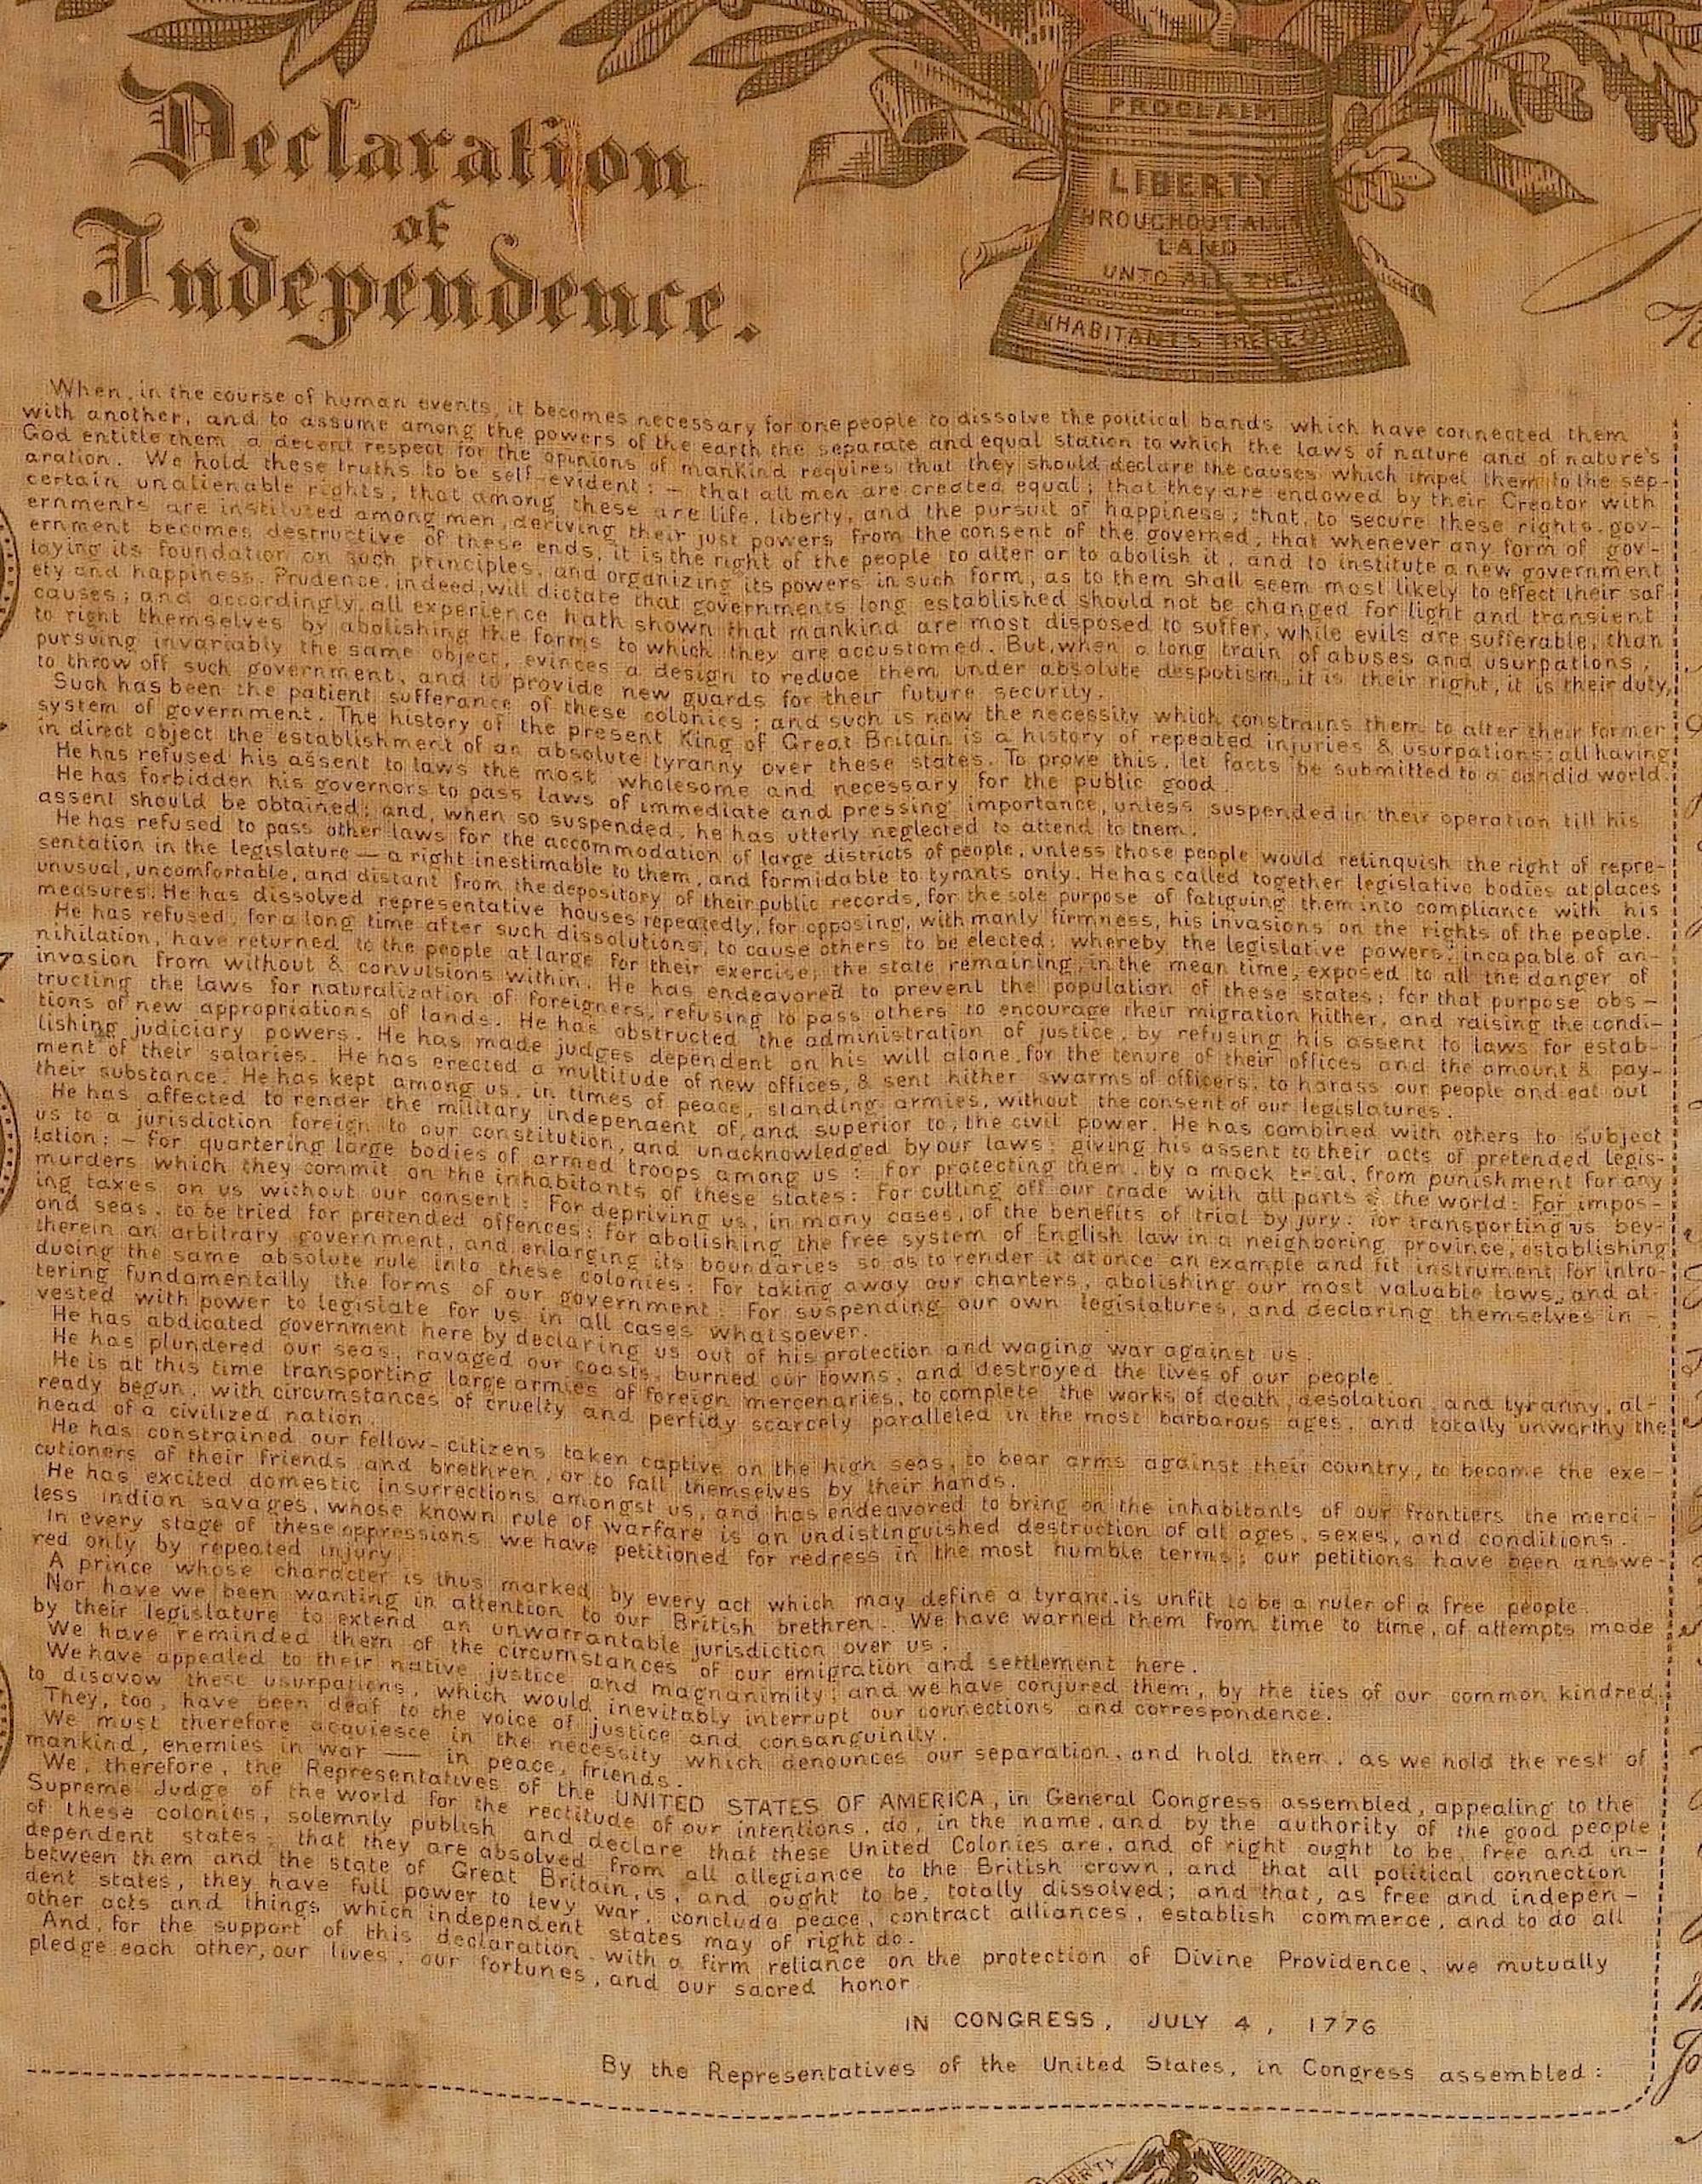 Declaration
of
Independence.
PROCLAIM
LIBERTY
HROUGHOUT ALL
LAND
UNTO ALL THE
INHABITANTS THEREOF
When, in the course of human events, it becomes necessary for one people to dissolve the political bands which have connected them
with another, and to assume among the powers of the earth the separate and equal station to which the laws of nature and of nature's
God entitle them, a decent respect for the opinions of mankind requires that they should declare the causes which impel them to the sep-
aration. We hold these truths to be self-evident: — that all men are created equal; that they are endowed by their Creator with
certain unalienable rights; that among these are life, liberty, and the pursuit of happiness; that, to secure these rights, gov-
ernments are instituted among men, deriving their just powers from the consent of the governed; that whenever any form of gov-
ernment becomes destructive of these ends, it is the right of the people to alter or to abolish it, and to institute a new government
laying its foundation on such principles, and organizing its powers in such form, as to them shall seem most likely to effect their saf-
ety and happiness. Prudence, indeed, will dictate that governments long established should not be changed for light and transient
causes; and accordingly, all experience hath shown that mankind are most disposed to suffer, while evils are sufferable, than
to right themselves by abolishing the forms to which they are accustomed. But, when a long train of abuses and usurpations,
pursuing invariably the same object, evinces a design to reduce them under absolute despotism, it is their right, it is their duty,
to throw off such government, and to provide new guards for their future security.
Such has been the patient sufferance of these colonies; and such is now the necessity which constrains them to alter their former
system of government. The history of the present King of Great Britain is a history of repeated injuries & usurpations; all having
in direct object the establishment of an absolute tyranny over these states. To prove this, let facts be submitted to a candid world.
He has refused his assent to laws the most wholesome and necessary for the public good.
He has forbidden his governors to pass laws of immediate and pressing importance, unless suspended in their operation till his
assent should be obtained; and, when so suspended, he has utterly neglected to attend to them.
He has refused to pass other laws for the accommodation of large districts of people, unless those people would relinquish the right of repre-
sentation in the legislature — a right inestimable to them, and formidable to tyrants only. He has called together legislative bodies at places
unusual, uncomfortable, and distant from the depository of their public records, for the sole purpose of fatiguing them into compliance with his
measures. He has dissolved representative houses repeatedly, for opposing, with manly firmness, his invasions on the rights of the people.
He has refused, for a long time after such dissolutions, to cause others to be elected; whereby the legislative powers, incapable of an-
nihilation, have returned to the people at large for their exercise; the state remaining, in the mean time, exposed to all the danger of
invasion from without & convulsions within. He has endeavored to prevent the population of these states; for that purpose obs-
tructing the laws for naturalization of foreigners, refusing to pass others to encourage their migration hither, and raising the condi-
tions of new appropriations of lands. He has obstructed the administration of justice, by refusing his assent to laws for estab-
lishing judiciary powers. He has made judges dependent on his will alone, for the tenure of their offices and the amount & pay-
ment of their salaries. He has erected a multitude of new offices, & sent hither swarms of officers, to harass our people and eat out
their substance. He has kept among us, in times of peace, standing armies, without the consent of our legislatures.
He has affected to render the military independent of, and superior to, the civil power. He has combined with others to subject
us to a jurisdiction foreign to our constitution, and unacknowledged by our laws; giving his assent to their acts of pretended legis-
lation: — for quartering large bodies of armed troops among us: For protecting them, by a mock trial, from punishment for any
murders which they commit on the inhabitants of these states: For cutting off our trade with all parts of the world: For impos-
ing taxes on us without our consent: For depriving us, in many cases, of the benefits of trial by jury: for transporting us bey-
ond seas, to be tried for pretended offences: for abolishing the free system of English law in a neighboring province, establishing
therein an arbitrary government, and enlarging its boundaries so as to render it at once an example and fit instrument for intro-
ducing the same absolute rule into these colonies: For taking away our charters, abolishing our most valuable laws, and al-
tering fundamentally the forms of our government: For suspending our own legislatures, and declaring themselves in-
vested with power to legislate for us in all cases whatsoever.
He has abdicated government here by declaring us out of his protection and waging war against us.
He has plundered our seas, ravaged our coasts, burned our towns, and destroyed the lives of our people.
He is at this time transporting large armies of foreign mercenaries, to complete the works of death, desolation, and tyranny, al-
ready begun, with circumstances of cruelty and perfidy scarcely paralleled in the most barbarous ages, and totally unworthy the
head of a civilized nation.
He has constrained our fellow-citizens taken captive on the high seas, to bear arms against their country, to become the exe-
cutioners of their friends and brethren, or to fall themselves by their hands.
He has excited domestic insurrections amongst us, and has endeavored to bring on the inhabitants of our frontiers the merci-
less indian savages, whose known rule of warfare is an undistinguished destruction of all ages, sexes, and conditions.
In every stage of these oppressions we have petitioned for redress in the most humble terms; our petitions have been answe-
red only by repeated injury.
A prince whose character is thus marked by every act which may define a tyrant, is unfit to be a ruler of a free people.
Nor have we been wanting in attention to our British brethren. We have warned them from time to time, of attempts made
by their legislature to extend an unwarrantable jurisdiction over us.
We have reminded them of the circumstances of our emigration and settlement here.
We have appealed to their native justice and magnanimity; and we have conjured them, by the ties of our common kindred,
to disavow these usurpations, which would inevitably interrupt our connections and correspondence.
They, too, have been deaf to the voice of justice and consanguinity.
We must therefore acquiesce in the necessity which denounces our separation, and hold them, as we hold the rest of
mankind, enemies in war — in peace, friends.
We, therefore, the Representatives of the UNITED STATES OF AMERICA, in General Congress assembled, appealing to the
Supreme Judge of the world for the rectitude of our intentions, do, in the name, and by the authority of the good people
of these colonies, solemnly publish and declare that these United Colonies are, and of right ought to be, free and in-
dependent states; that they are absolved from all allegiance to the British crown, and that all political connection
between them and the state of Great Britain, is, and ought to be, totally dissolved; and that, as free and indepen-
dent states, they have full power to levy war, conclude peace, contract alliances, establish commerce, and to do all
other acts and things which independent states may of right do.
And, for the support of this declaration, with a firm reliance on the protection of Divine Providence, we mutually
pledge each other, our lives, our fortunes, and our sacred honor.
IN CONGRESS, JULY 4, 1776
By the Representatives of the United States, in Congress assembled: